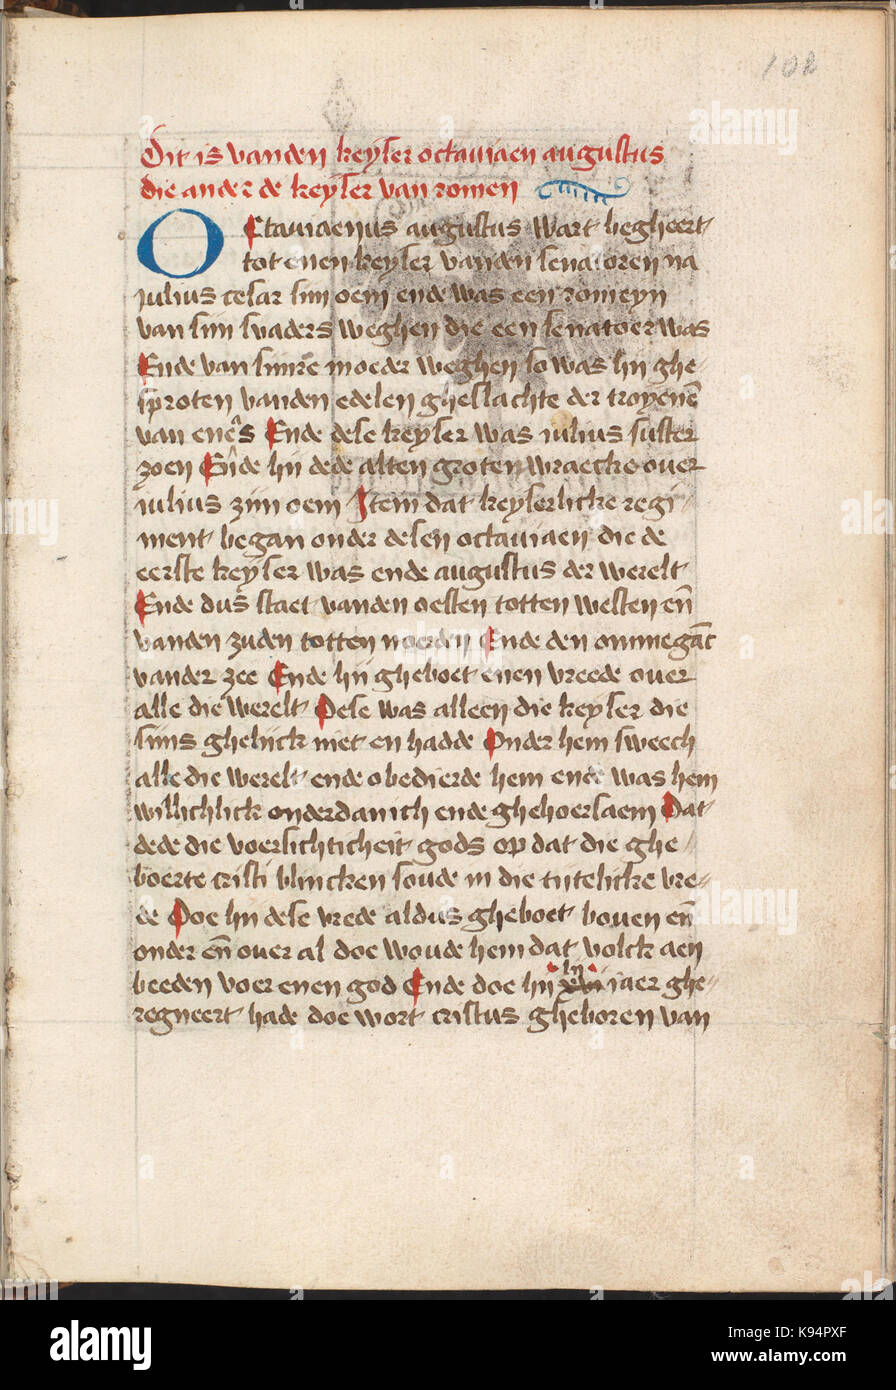 102
Dit is vanden keyser octauiaen augustus
die ander de keyser van romen
OCtauiaenus augustus wart begheert
tot enen keyser vanden senatoren na
iulius cesar sijn oem ende was een romeyn
van sijn svaders weghen die een senatoer was
Ende van sinre moeder weghen so was hij ghe-
sproten vanden edelen gheslachte der troyenē
van eneas Ende dese keyser was iulius suster
zoen Eñde hij dede alten groten wraecke ouer
iulius zijn oem Item dat keyserlicke regi-
ment began onder desen octauiaen die de
eerste keyser was ende augustus der werelt
Ende dus staet vanden oesten totten westen eñ
vanden zuden totten noerden Ende den ommegāc
vander zee Ende hij gheboet enen vreede ouer
alle die werelt Dese was alleen die keyser die
sijns ghelijck niet en hadde Onder hem sweech
alle die werelt ende obedierde hem ende was hem
willichlick onderdanich ende ghehoersaem Dat
dede die voersichticheit gods op dat die ghe-
boerte cristi blincken soude in die tijtelicke vre-
de Doe hij dese vrede aldus gheboet bouen eñ
onder eñ ouer al doe woude hem dat volck aen
beeden voer enen god Ende doe hij iaer ghe-
regneert hade doe wort cristus gheboren van
alamy
K94PXF
www.alamy.com